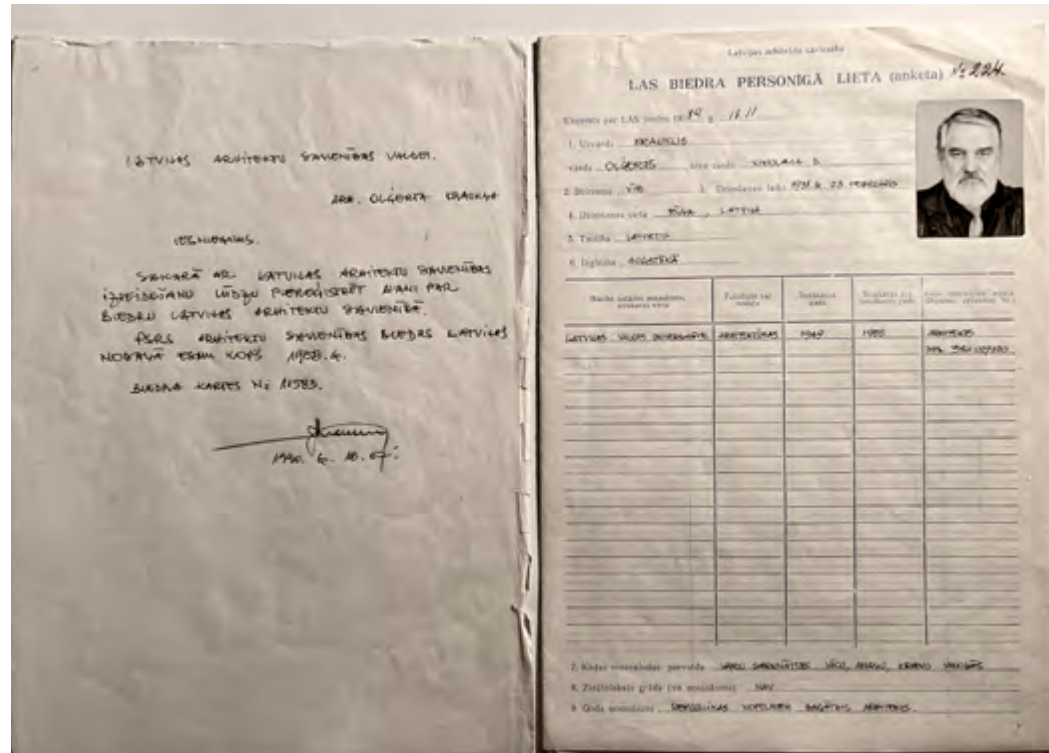 LATVIJAS ARHITEKTU SAVIENĪBAS VALDEI.
ARH. OĻĢERTA KRAUKĻA
IESNIEGUMS.
SAKARĀ AR LATVIJAS ARHITEKTU SAVIENĪBAS
IZVEIDOŠANU LŪDZU PIEREĢISTRĒT MANI PAR
BIEDRU LATVIJAS ARHITEKTU SAVIENĪBĀ.
PSRS ARHITEKTU SAVIENĪBAS BIEDRS LATVIJAS
NODAĻĀ ESMU KOPŠ 1958. G.
BIEDRA KARTES Nº 11583.
1990. G.
Latvijas arhitektu savienība
LAS BIEDRA PERSONĪGĀ LIETA (anketa) Nº 224.
Uzņemts par LAS biedru
1. Uzvārds KRAUKLIS
vārds OĻĢERTS, tēva vārds NIKOLAJA D.
2. Dzimums VĪR. 3. Dzimšanas laiks 1931. G. 23. FEBRUĀRIS
4. Dzimšanas vieta RĪGA, LATVIJA
5. Tautība LATVIETIS
6. Izglītība AUGSTĀKĀ
Fakultāte vai nodaļa
LATVIJAS VALSTS UNIVERSITĀTE ARHITEKTŪRAS 1949 1955 ARHITEKTS
7. Kādas svešvalodas pārvalda VARU SARUNĀTIES VĀCU, ANGĻU, KRIEVU VALODĀS
8. Zinātniskais grāds (un nosaukums) NAV
9. Goda nosaukumi REPUBLIKAS NOPELNIEM BAGĀTAIS ARHITEKTS.